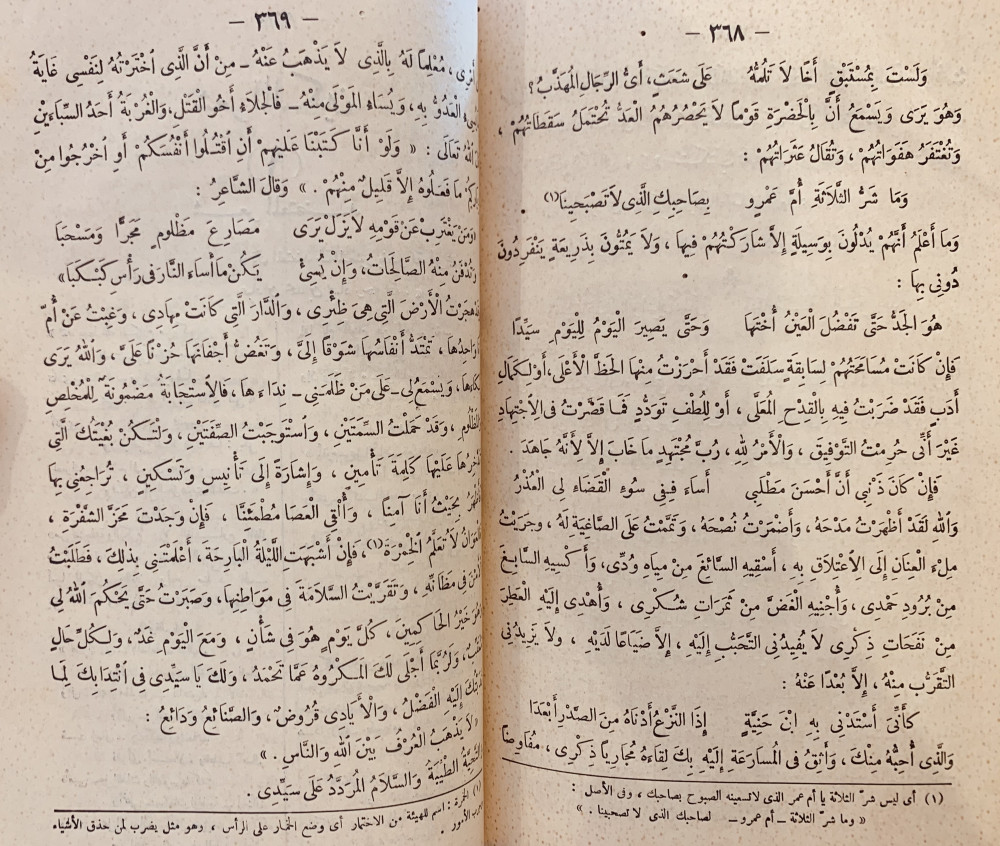 — ٣٦٨ —
وَلَسْتَ بِمُسْتَبْقٍ أَخًا لَا تَلُمُّهُ عَلَى شَعَثٍ، أَىُّ الرِّجَالِ الْمُهَذَّبُ؟
وَهُوَ يَرَى وَيَسْمَعُ أَنَّ بِالْحَضْرَةِ قَوْمًا لَا يَحْصُرُهُمُ الْعَدُّ تُحْتَمَلُ سَقَطَاتُهُمْ ،
وَتُغْتَفَرُ هَفَوَاتُهُمْ ، وَتُقَالُ عَثَرَاتُهُمْ :
وَمَا شَرُّ الثَّلَاثَةِ أُمَّ عَمْرٍو بِصَاحِبِكِ الَّذِى لَا تَصْبَحِينَا(١)
وَمَا أَعْلَمُ أَنَّهُمْ يُدْلُونَ بِوَسِيلَةٍ إِلَّا شَارَكْتُهُمْ فِيهَا ، وَلَا يَمُتُّونَ بِذَرِيعَةٍ يَنْفَرِدُونَ
دُونِى بِهَا :
هُوَ الْجَدُّ حَتَّى تَفْضُلَ الْعَيْنُ أُخْتَهَا وَحَتَّى يَصِيرَ الْيَوْمُ لِلْيَوْمِ سَيِّدًا
فَإِنْ كَانَتْ مُسَامَحَتُهُمْ لِسَابِقَةٍ سَلَفَتْ فَقَدْ أَحْرَزْتُ مِنْهَا الْحَظَّ الْأَعْلَى، أَوْ لِكَمَالِ
أَدَبٍ فَقَدْ ضَرَبْتُ فِيهِ بِالْقِدْحِ الْمُعَلَّى ، أَوْ لِلُطْفِ تَوَدُّدٍ فَمَا قَصَّرْتُ فِى الِاجْتِهَادِ
غَيْرَ أَنِّى حُرِمْتُ التَّوْفِيقَ ، وَالْأَمْرُ لِلهِ ، رُبَّ مُجْتَهِدٍ مَا خَابَ إِلَّا لِأَنَّهُ جَاهَدَ .
فَإِنْ كَانَ ذَنْبِى أَنَّ أَحْسَنَ مَطْلَبِى أَسَاءَ فَفِى سُوءِ الْقَضَاءِ لِىَ الْعُذْرُ
وَاللهِ لَقَدْ أَظْهَرْتُ مَدْحَهُ ، وَأَضْمَرْتُ نُصْحَهُ ، وَتَمَّمْتُ عَلَى الصَّاغِيَةِ لَهُ ، وَجَرَيْتُ
مِلْءَ الْعِنَانِ إِلَى الِاعْتِلَاقِ بِهِ ، أَسْقِيهِ السَّائِغَ مِنْ مِيَاهِ وُدِّى، وَأَكْسِيهِ السَّابِغَ
مِنْ بُرُودِ حَمْدِى ، وَأُجْنِيهِ الْغَضَّ مِنْ ثَمَرَاتِ شُكْرِى ، وَأُهْدِى إِلَيْهِ الْعَطِرَ
مِنْ نَفَحَاتِ ذِكْرِى لَا يُفِيدُنِى التَّحَبُّبُ إِلَيْهِ ، إِلَّا ضَيَاعًا لَدَيْهِ ، وَلَا يَزِيدُنِى
التَّقَرُّبُ مِنْهُ ، إِلَّا بُعْدًا عَنْهُ :
كَأَنِّى أَسْتَدْنِى بِهِ ابْنَ حَنِيَّةٍ إِذَا النَّزْعُ أَدْنَاهُ مِنَ الصَّدْرِ أَبْعَدَا
وَالَّذِى أُحِبُّهُ مِنْكَ ، وَأَثِقُ فِى الْمُسَارَعَةِ إِلَيْهِ بِكَ لِقَاءَهُ مُجَارِيًا ذِكْرِى ، مُفَاوِضًا
(١) أى ليس شرّ الثلاثة يا أم عمر الذى لا تسقينه الصبوح بصاحبك ، وفى الأصل :
« وما شرّ الثلاثة ــ أم عمرو ــ لصاحبك الذى لا لصحبينا . »
— ٣٦٩ —
أَمْرِى، مُعْلِمًا لَهُ بِالَّذِى لَا يَذْهَبُ عَنْهُ ــ مِنْ أَنَّ الَّذِى اخْتَرْتُهُ لِنَفْسِى غَايَةُ
الْعَدُوُّ بِهِ، وَيُسَاءُ الْمَوْلَى مِنْهُ ــ فَالْجَلَاءُ أَخُو الْقَتْلِ، وَالْغُرْبَةُ أَحَدُ السِّبَاءَيْنِ
اللهُ تَعَالَى : « وَلَوْ أَنَّا كَتَبْنَا عَلَيْهِمْ أَنِ اقْتُلُوا أَنْفُسَكُمْ أَوِ اخْرُجُوا مِنْ
مَا فَعَلُوهُ إِلَّا قَلِيلٌ مِنْهُمْ . » وَقَالَ الشَّاعِرُ :
يَغْتَرِبْ عَنْ قَوْمِهِ لَا يَزَلْ يَرَى مَصَارِعَ مَظْلُومٍ مَجَرًّا وَمَسْحَبَا
وَتُدْفَنُ مِنْهُ الصَّالِحَاتُ، وَإِنْ يُسِئْ يَكُنْ مَا أَسَاءَ النَّارَ فِى رَأْسِ كَبْكَبَا»
هَجَرْتُ الْأَرْضَ الَّتِى هِىَ ظِئْرِى ، وَالدَّارَ الَّتِى كَانَتْ مِهَادِى ، وَغِبْتُ عَنْ أُمٍّ
وَاحِدُهَا، تَمْتَدُّ أَنْفَاسُهَا شَوْقًا إِلَىَّ ، وَتَغُضُّ أَجْفَانَهَا حُزْنًا عَلَىَّ ، وَاللهُ يَرَى
بُكَاءَهَا، وَيَسْمَعُ لِى ــ عَلَى مَنْ ظَلَمَنِى ــ نِدَاءَهَا، فَالِاسْتِجَابَةُ مَضْمُونَةٌ لِلْمُخْلِصِ
الْمَظْلُومِ ، وَقَدْ حَمَلْتُ السِّمَتَيْنِ ، وَاسْتَوْجَبْتُ الصِّفَتَيْنِ ، وَلْتَكُنْ بُغْيَتُكَ الَّتِى
عَلَيْهَا كَلِمَةَ تَأْمِينٍ ، وَإِشَارَةً إِلَى تَأْنِيسٍ وَتَسْكِينٍ ، تُرَاجِعُنِى بِهَا
بِحَيْثُ أَنَا آمِنًا ، وَأُلْقِى الْعَصَا مُطْمَئِنًّا ، فَإِنْ وَجَدْتَ مَحَزَّ الشَّفْرَةِ ،
الْعَوَانُ لَا تَعَلَّمُ الْخِمْرَةَ(١)، فَإِنْ أَشْبَهَتِ اللَّيْلَةُ الْبَارِحَةَ، أَعْلَمْتَنِى بِذَلِكَ، فَطَلَبْتُ
فِى مَظَانِّهِ ، وَتَقَرَّيْتُ السَّلَامَةَ فِى مَوَاطِنِهَا، وَصَبَرْتُ حَتَّى يَحْكُمَ اللهُ لِى
خَيْرُ الْحَاكِمِينَ، كُلَّ يَوْمٍ هُوَ فِى شَأْنٍ ، وَمَعَ الْيَوْمِ غَدٌ، وَلِكُلِّ حَالٍ
وَلَرُبَّمَا أَجْلَى لَكَ الْمَكْرُوهُ عَمَّا تَحْمَدُ، وَلَكَ يَا سَيِّدِى فِى انْتِدَابِكَ لِمَا
إِلَيْهِ الْفَضْلُ، وَالْأَيَادِى قُرُوضٌ، وَالصَّنَائِعُ وَدَائِعُ :
«لَا يَذْهَبُ الْعُرْفُ بَيْنَ اللهِ وَالنَّاسِ . »
التَّحِيَّةُ الطَّيِّبَةُ وَالسَّلَامُ الْمُرَدَّدُ عَلَى سَيِّدِى .
(١) الخمرة : اسم للهيئة من الاختمار أى وضع الخمار على الرأس ، وهو مثل يضرب لمن حذق الأشياء
الأمور .